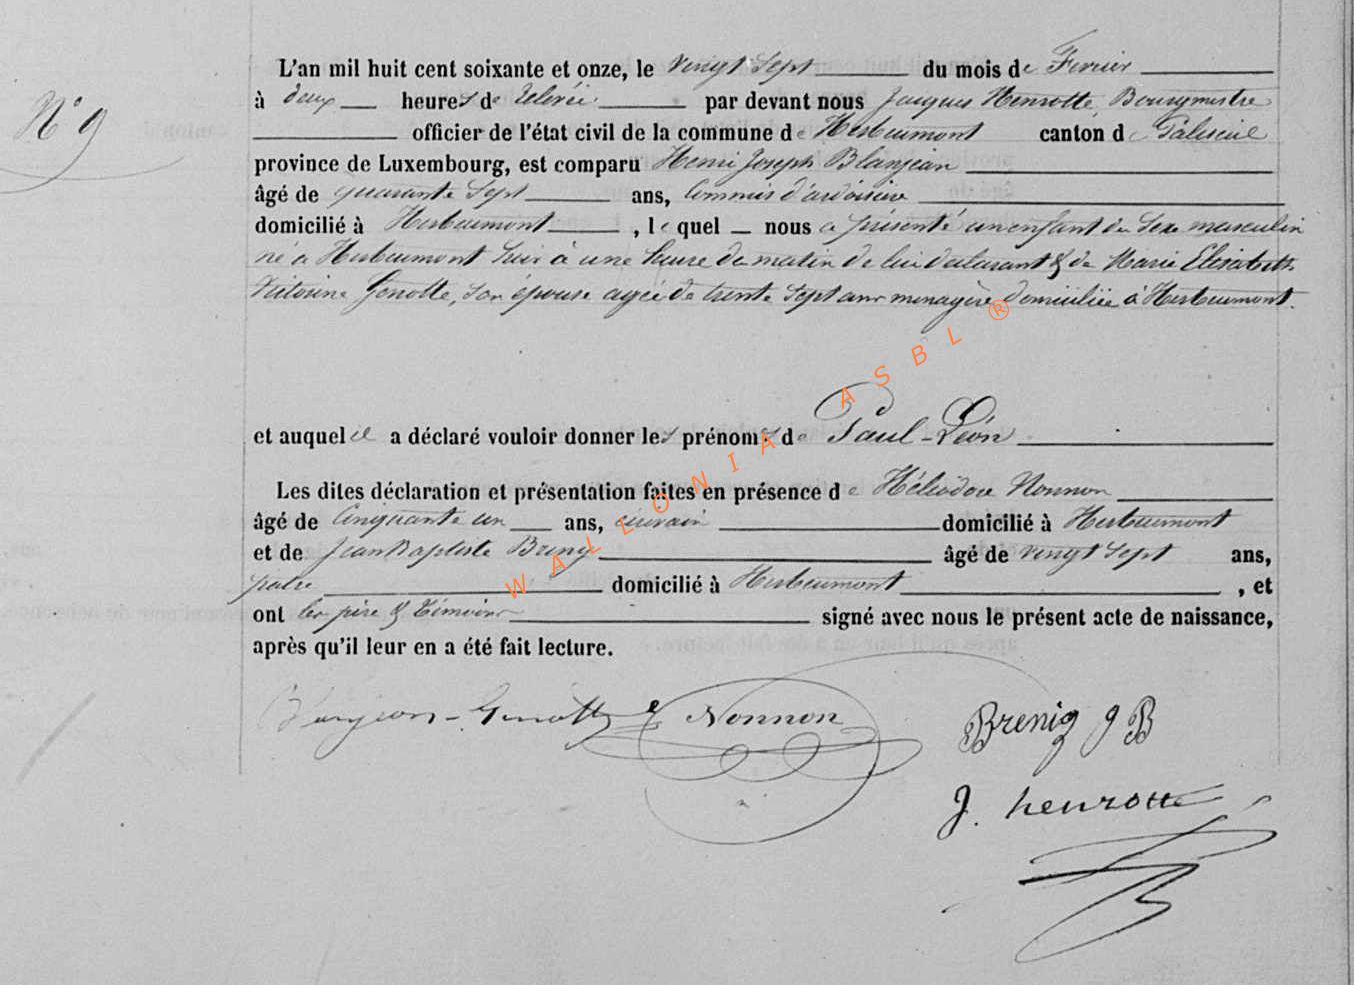 N° 9
L'an mil huit cent soixante et onze, le vingt sept du mois de Fevrier
à deux heures de relevée par devant nous Jacques Henrotte Bourgmestre
officier de l'état civil de la commune de Herbeumont canton de Paliseul
province de Luxembourg, est comparu Henri Joseph Blanjean
âgé de quarante sept ans, Commis d'ardoisière
domicilié à Herbeumont, lequel nous a présenté un enfant du sexe masculin
né à Herbeumont hier à une heure du matin de lui déclarant & de Marie Elisabeth
Victorine Genotte, son épouse agée de trente sept ans menagère domiciliée à Herbeumont.
et auquel il a déclaré vouloir donner les prénoms de Paul-Léon
Les dites déclaration et présentation faites en présence de Héliodore Nonnon
âgé de Cinquante un ans, écrivain domicilié à Herbeumont
et de Jean Baptiste Brenig âgé de vingt sept ans,
patre domicilié à Herbeumont, et
ont les père & témoins signé avec nous le présent acte de naissance,
après qu'il leur en a été fait lecture.
Blanjean-Genotte Nonnon Brenig J B
J. henrotte
WALLONIA ASBL ®